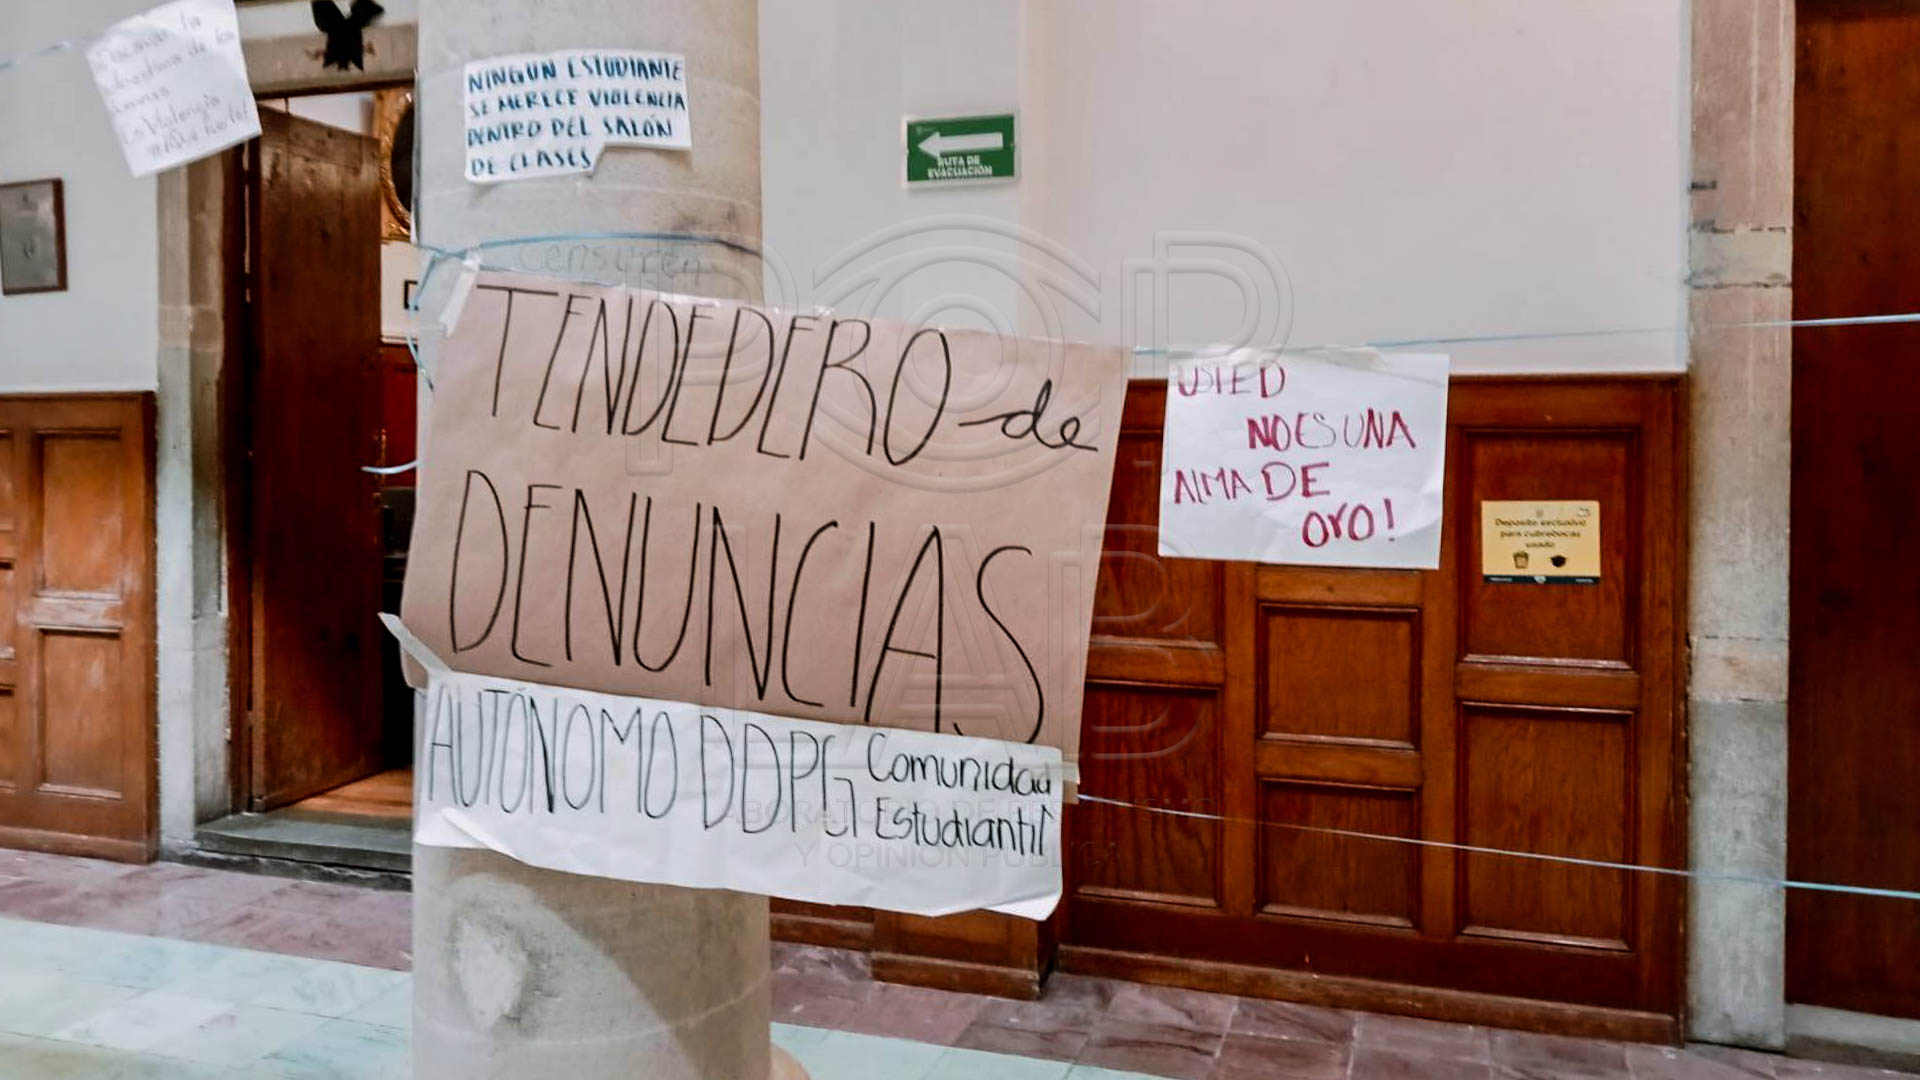 la
de los
Es Violencia
NINGUN ESTUDIANTE
SE MERECE VIOLENCIA
DENTRO DEL SALÓN
DE CLASES
RUTA DE
EVACUACIÓN
censuren
TENDEDERO de
DENUNCIAS
AUTÓNOMO DDPG Comunidad
Estudiantil
USTED
NO ES UNA
ALMA DE
ORO!
Deposito exclusivo
para cubrebocas
usado
POP
LAB
LABORATORIO DE PERIODISMO
Y OPINIÓN PÚBLICA